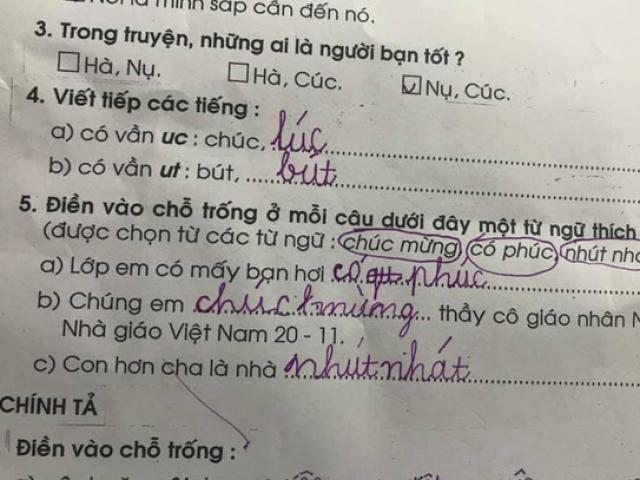 mình sắp cần đến nó.
3. Trong truyện, những ai là người bạn tốt ?
Hà, Nụ. Hà, Cúc. Nụ, Cúc.
4. Viết tiếp các tiếng :
a) có vần uc : chúc, lúc
b) có vần ut : bút, bút
5. Điền vào chỗ trống ở mỗi câu dưới đây một từ ngữ thích
(được chọn từ các từ ngữ : chúc mừng, có phúc, nhút nh
a) Lớp em có mấy bạn hơi có phúc
b) Chúng em chúc mừng ... thầy cô giáo nhân N
Nhà giáo Việt Nam 20 - 11.
c) Con hơn cha là nhà nhút nhát
CHÍNH TẢ
Điền vào chỗ trống :